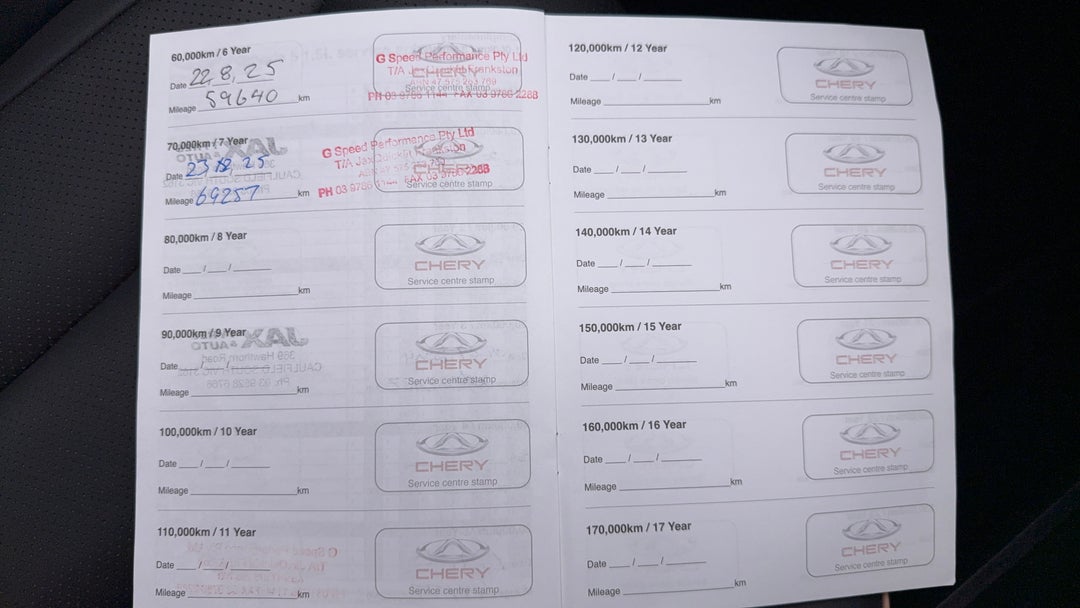 60,000km / 6 Year
Date 22.8,25
Mileage 59640 km
G Speed Performance Pty Ltd
T/A Jax Frankston
CHERY
Service centre stamp
PH 03 9786 1144 FAX 03 9786 2268
70,000km / 7 Year
Date
Mileage 69257 km
G Speed Performance Pty Ltd
T/A Jax
CHERY
PH 03 9786 1144 FAX 03 9786 2268
Service centre stamp
80,000km / 8 Year
Date __/__/____
Mileage ____ km
CHERY
Service centre stamp
90,000km / 9 Year
Date __/__/____
Mileage ____ km
CHERY
Service centre stamp
100,000km / 10 Year
Date __/__/____
Mileage ____ km
CHERY
Service centre stamp
110,000km / 11 Year
Date __/__/____
Mileage ____ km
CHERY
Service centre stamp
120,000km / 12 Year
Date __/__/____
Mileage ____ km
CHERY
Service centre stamp
130,000km / 13 Year
Date __/__/____
Mileage ____ km
CHERY
Service centre stamp
140,000km / 14 Year
Date __/__/____
Mileage ____ km
CHERY
Service centre stamp
150,000km / 15 Year
Date __/__/____
Mileage ____ km
CHERY
Service centre stamp
160,000km / 16 Year
Date __/__/____
Mileage ____ km
CHERY
Service centre stamp
170,000km / 17 Year
Date __/__/____
Mileage ____ km
CHERY
Service centre stamp